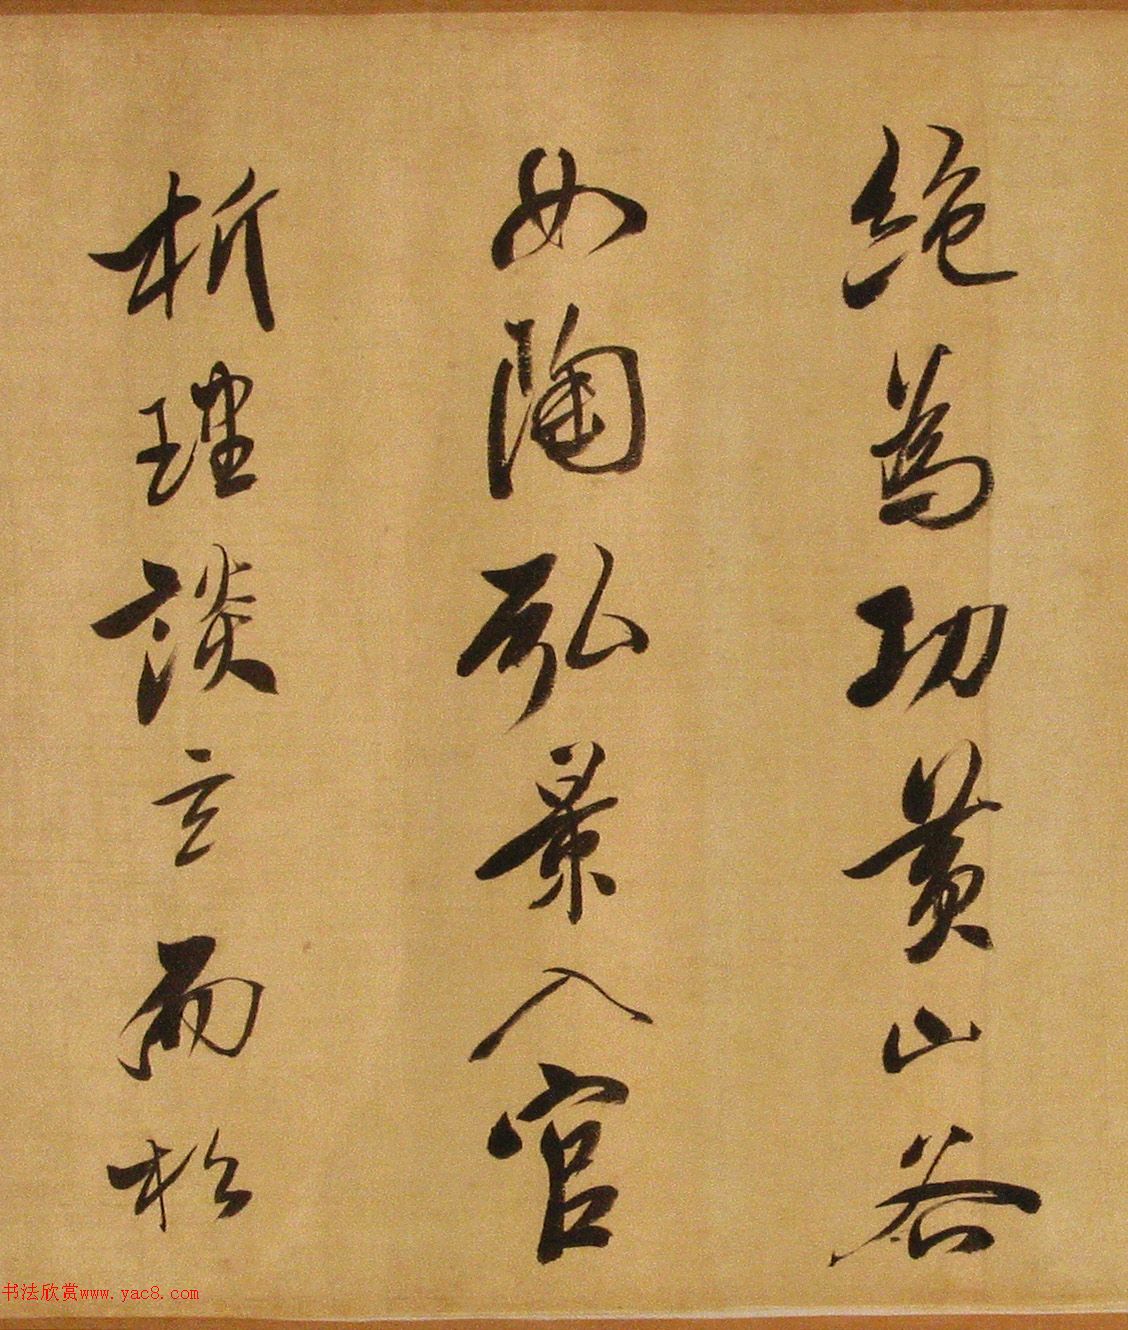 絶為功黄山谷
如陶弘景入官
析理談玄而松
书法欣赏www.yac8.com